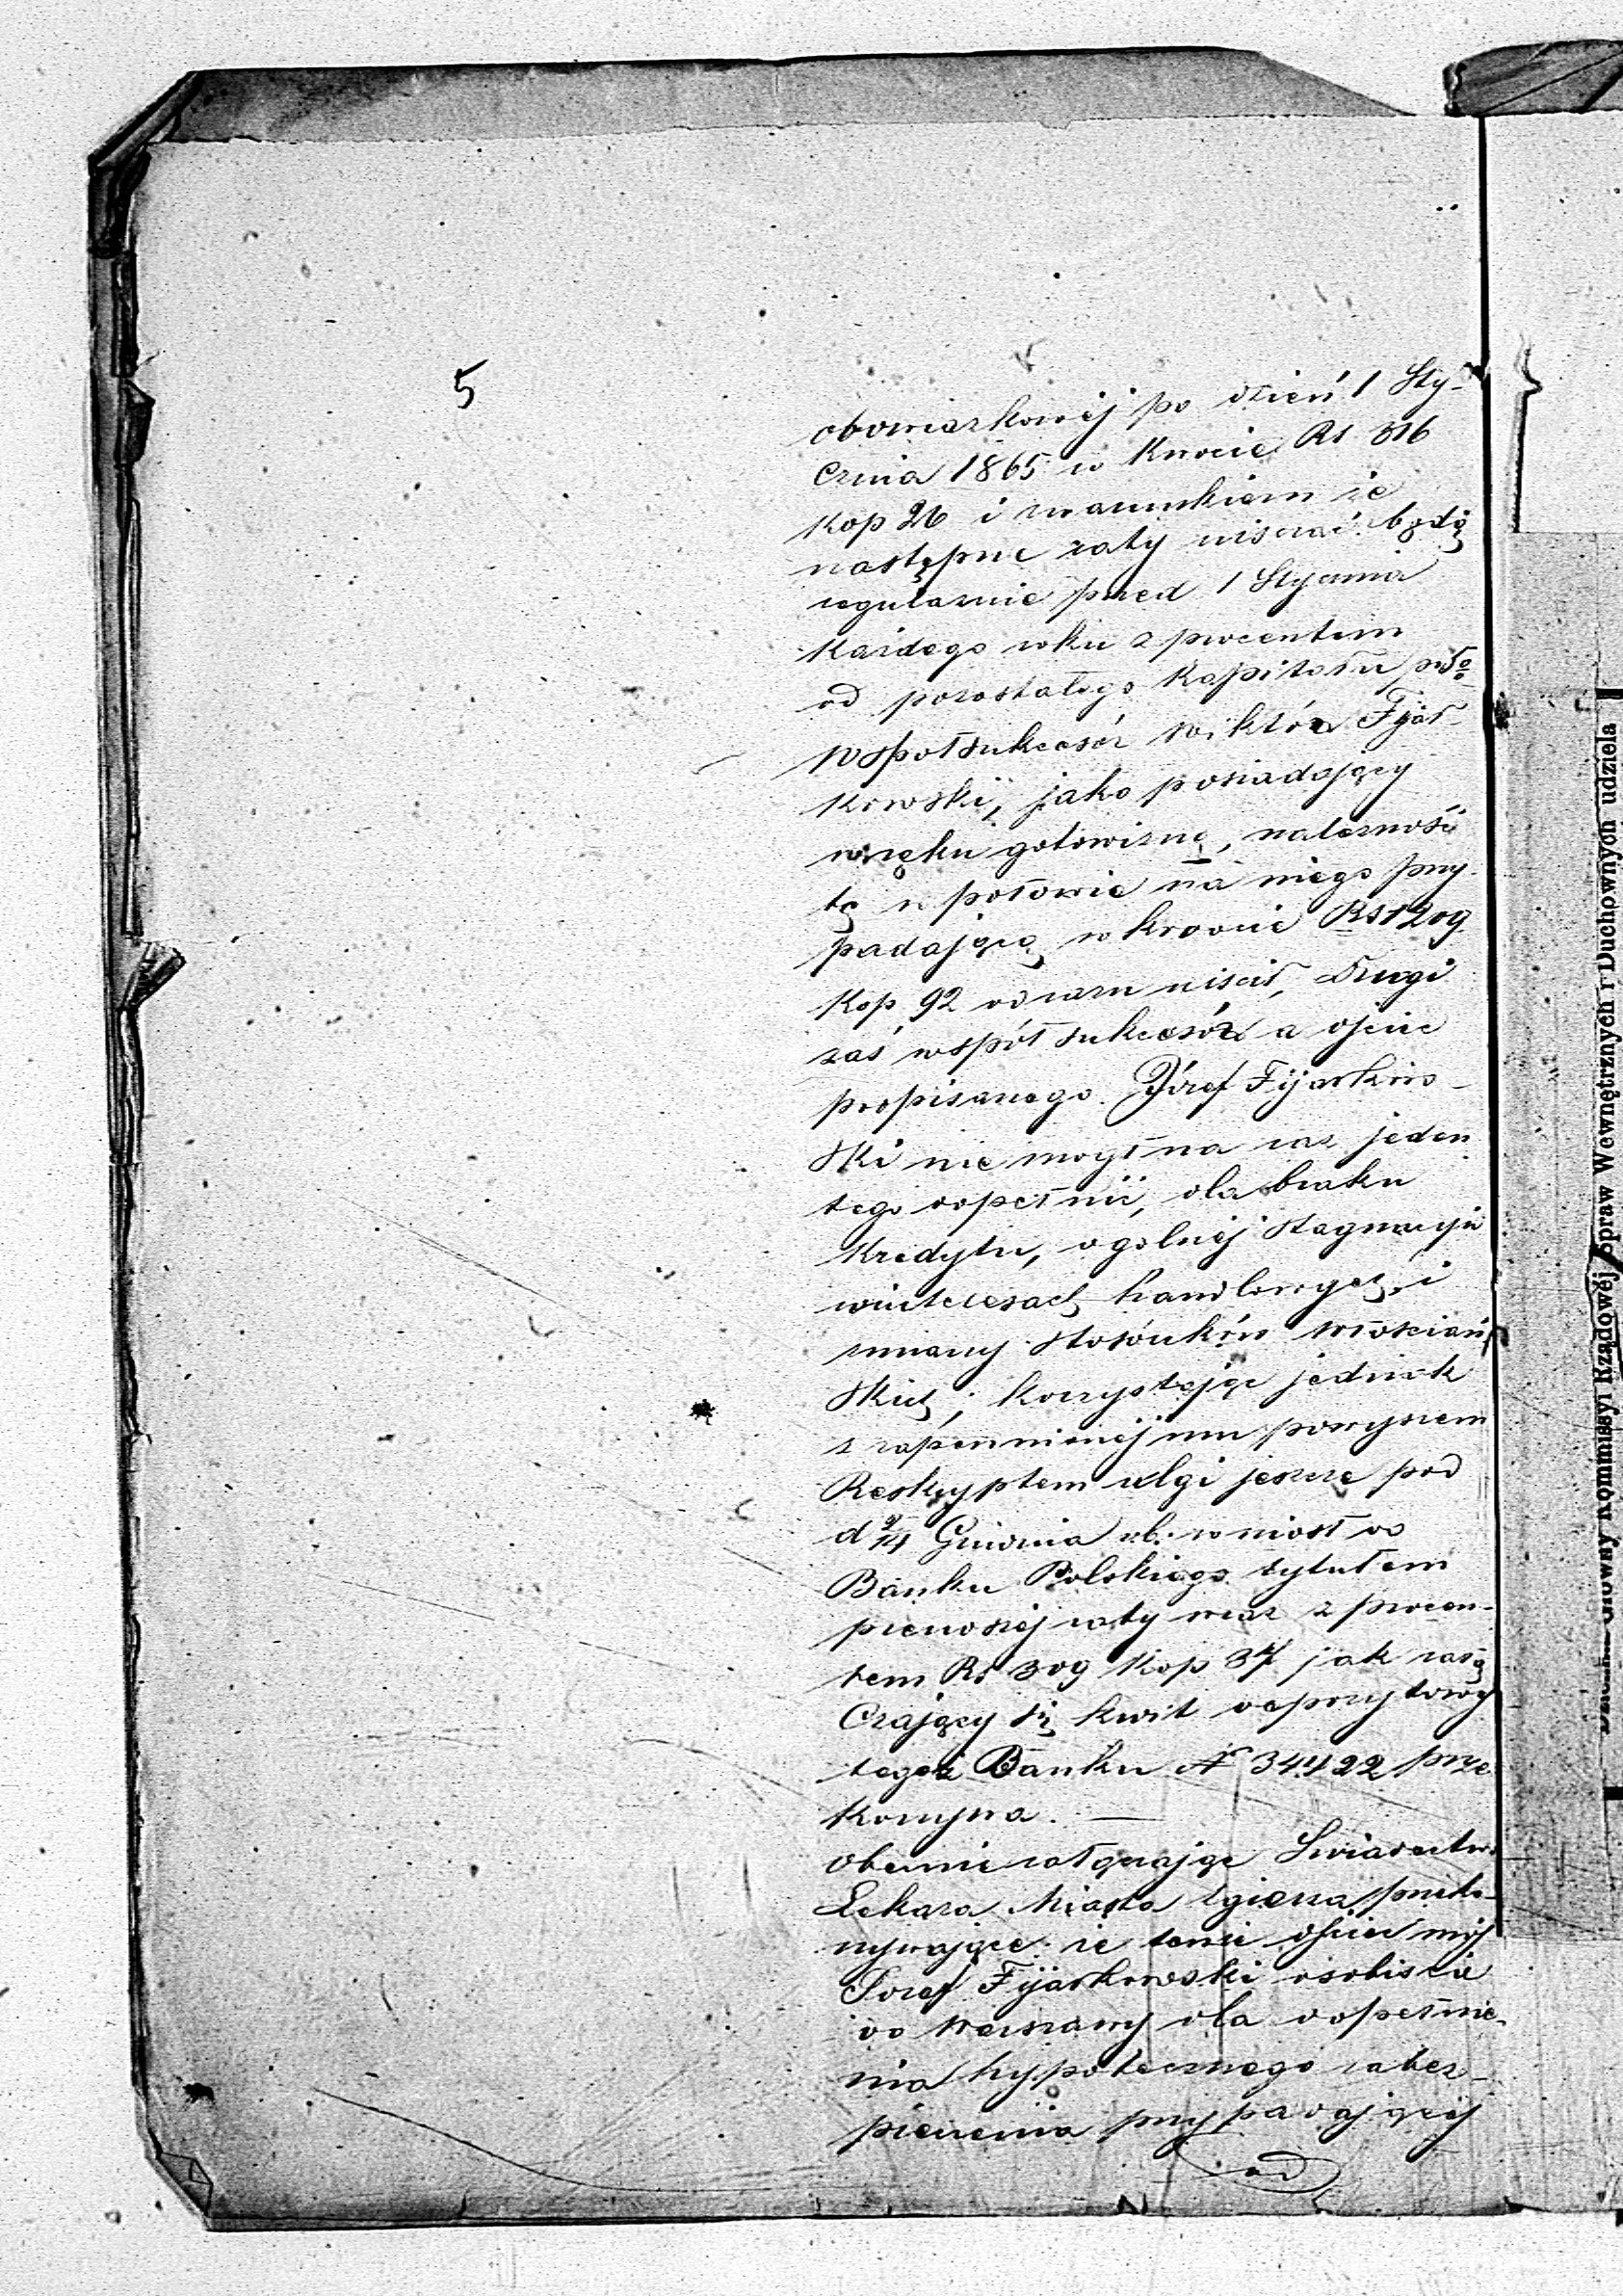 5
obowiązkowéj po dzień 1 Sty-
cznia 1865 w kwocie Rs 316
Kop 26 i warunkiem że
następne raty uiszczać będą
regularnie przed 1 Stycznia
Każdego roku z procentem
od pozostałego Kapitału
współsukcesór Wiktór Fijał-
kowski, jako posiadający
w ręku gotowiznę, należność
tę w połowie na niego przy-
padającą w kwocie Rs 1209
Kop 92 odrazu uiścił, Drugi
zaś współsukcesór a ojciec
podpisanego Józef Fijałkow-
ski nie mógł na raz jeden
tego dopełnić, dla braku
Kredytu, ogólnéj stagnacyi
w interesach handlowych i
zmiany stosunków włościań
skich; korzystając jednak
z zapewnionéj mu powyższem
Reskryptem ulgi jeszcze pod
d Grudnia r.b. wniósł do
Banku Polskiego tytułem
pierwszéj raty wraz z procen-
tem Rs 309 Kop 37 jak załą
czający się kwit depozytowy
tegoż Banku N 34422 prze
konywa.
Obecnie załączając Świadectwo
Lekarza Miasta Zgierza przeko-
nywające że tenże ojciec mój
Józef Fijałkowski osobiście
do Warszawy dla dopełnie-
nia hypotecznego zabez-
pieczenia przypadającéj
od
Główny Kommissyi Rządowéj Spraw Wewnętrznych i Duchownych udziela